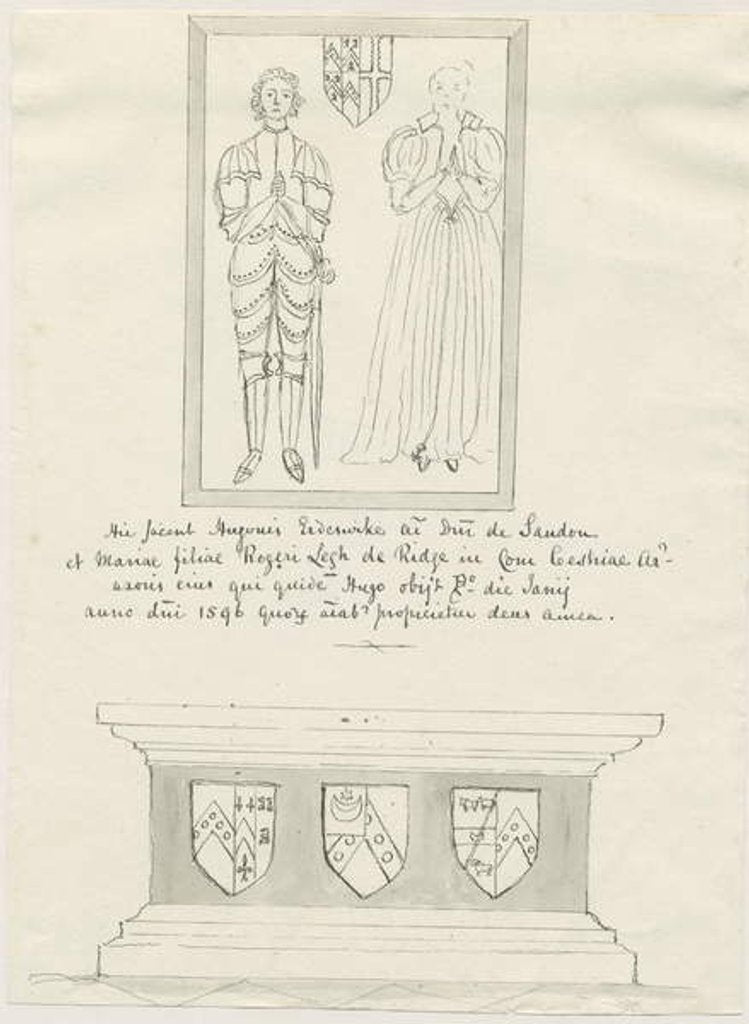 Hic Jacent Hugonis Erdeswike aī Dn̄i de Sandon
et Mariae filiae Rogeri Legh de Ridge in Com Cestriae Arr
uxoris eius qui quidē Hugo obijt die Janij
anno dn̄i 1596 quorꝝ aīab⁹ propicietur deus amen.